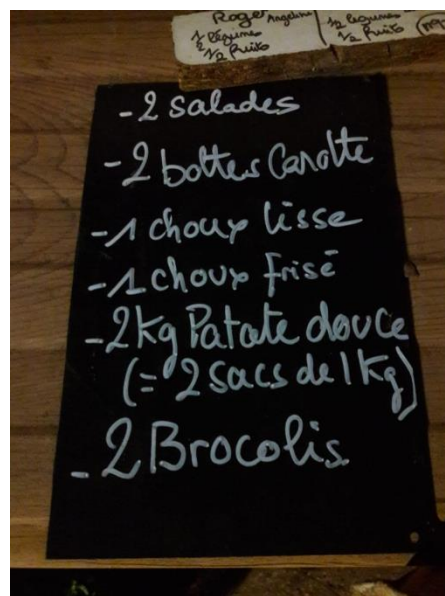 Roger Angeline
1/2 légumes
1/2 fruits
1/2 légumes
1/2 fruits
- 2 salades
- 2 bottes Carotte
- 1 choux lisse
- 1 choux frisé
- 2 Kg Patate douce
(= 2 sacs de 1 Kg)
- 2 Brocolis